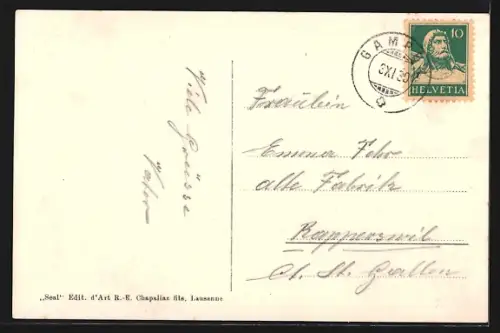 Viele Grüsse
Vater
GAMP
3XI.30
10
HELVETIA
Fräulein
Emma Fehr
alte Fabrik
Rapperswil
Ct. St. Gallen
„Seal“ Edit. d'Art R.-E. Chapallaz fils, Lausanne